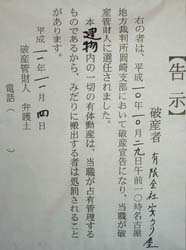 【告示】
破産者 有限会社安力屋
右の者は、平成一〇年一〇月二九日午前一〇時名古屋
地方裁判所岡崎支部において破産宣告になり、当職が破
産管財人に選任されました。
本建物内の一切の有体動産は、当職が占有管理する
ものであるから、みだりに搬出する者は処罰されること
があります。
平成一〇年一一月四日
破産管財人 弁護士
電話(　)